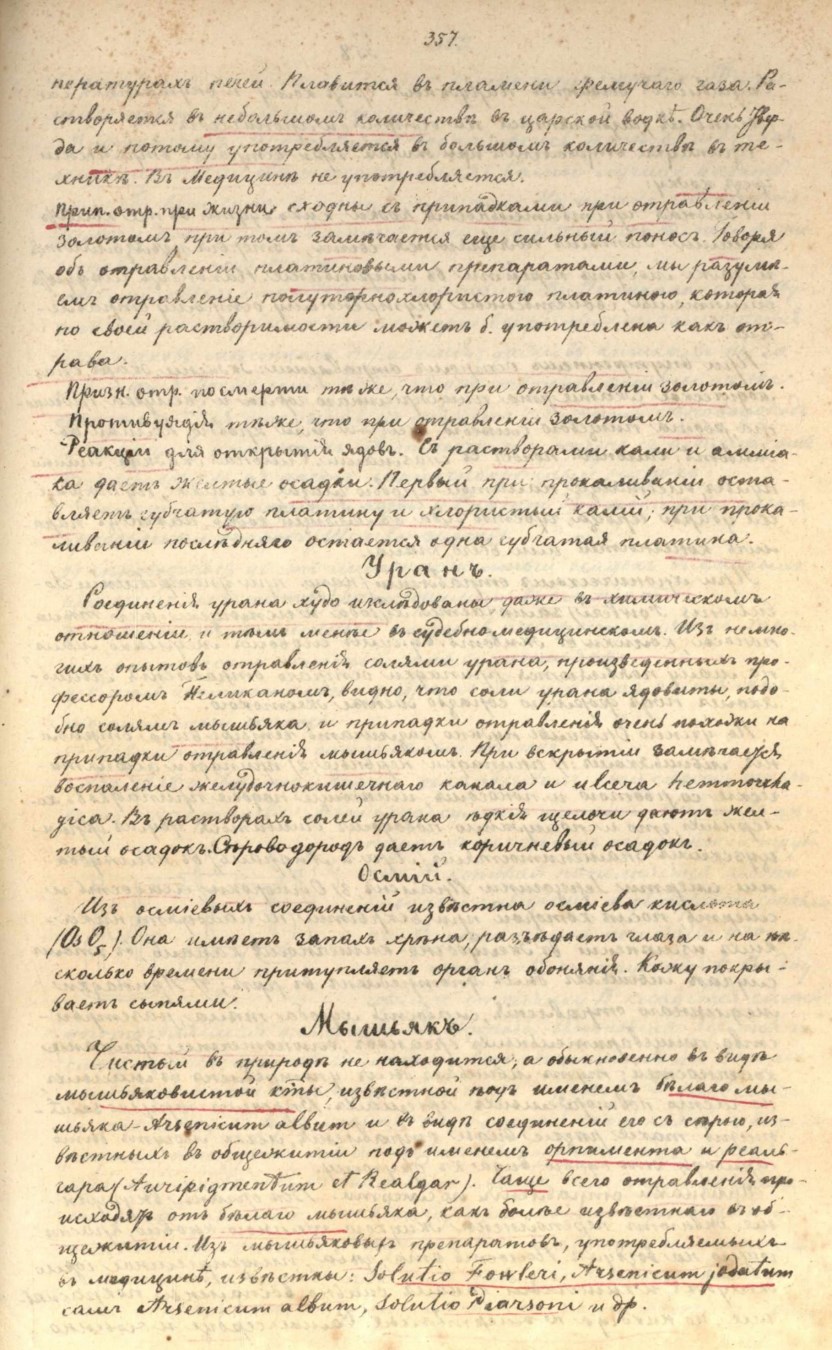 357.
пературахъ печей. Плавится въ пламени гремучаго газа. Ра-
створяется въ небольшомъ количествѣ въ царской водкѣ. Очень твер-
да и потому употребляется въ большомъ количествѣ въ те-
хникѣ. Въ Медицинѣ не употребляется.
Прип. отр. при жизни сходны съ припадками при отравленіи
золотомъ, при томъ замѣчается еще сильный поносъ. Говоря
объ отравленіи платиновыми препаратами, мы разумѣ-
емъ отравленіе полуторнохлористого платиною, которая
по своей растворимости можетъ б. употреблена какъ от-
рава.
Призн. отр. посмерти тѣже, что при отравленіи золотомъ.
Противуядія тѣже, что при отравленіи золотомъ.
Реакціи для открытія ядовъ. Съ растворами кали и амміа-
ка даетъ желтые осадки. Первый при прокаливаніи оста-
вляетъ губчатую платину и хлористый калій; при прока-
ливаніи послѣдняго остается одна губчатая платина.
Уранъ.
Соединенія урана худо изслѣдованы даже въ химическомъ
отношеніи и тѣмъ менѣе въ судебномедицинскомъ. Изъ немно-
гихъ опытовъ отравленія солями урана, произведенныхъ про-
фессоромъ Пеликаномъ, видно, что соли урана ядовиты, подо-
бно солямъ мышьяка и припадки отравленія очень похожи на
припадки отравленія мышьякомъ. При вскрытіи замѣчается
воспаленіе желудочнокишечнаго канала и ulcera hemmorrha-
gica. Въ растворахъ солей урана ѣдкія щелочи даютъ жел-
тый осадокъ. Сѣроводородъ даетъ коричневый осадокъ.
Осмій.
Изъ осміевыхъ соединеній извѣстна осміева кислота
(OsO5). Она имѣетъ запахъ хрѣна, разъѣдаетъ глаза и на нѣ-
сколько времени притупляетъ органъ обонянія. Кожу покры-
ваетъ сыпями.
Мышьякъ.
Чистый въ природѣ не находится, а обыкновенно въ видѣ
мышьяковистой кты, извѣстной подъ именемъ бѣлаго мы-
шьяка - Arsenicum album и въ видѣ соединеній его съ сѣрою, из-
вѣстныхъ въ общежитіи подъ именемъ орпимента и реаль-
гара (Auripigmentum et Realgar). Чаще всего отравленія про-
исходятъ отъ бѣлаго мышьяка, какъ болѣе извѣстнаго въ об-
щежитіи. Изъ мышьяковыхъ препаратовъ, употребляемыхъ
въ медицинѣ, извѣстны: Solutio Fowleri, Arsenicum jodatum
самъ Arsenicum album, Solutio Pearsoni и др.